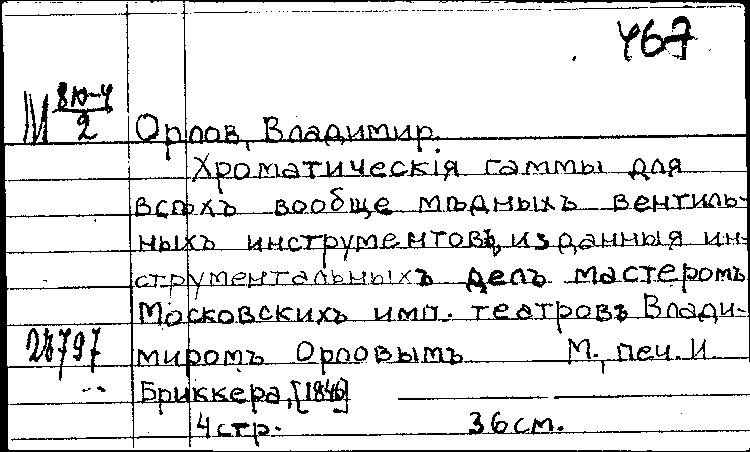 467
М 8Ю-4
2
Орлов, Владимир.
Хроматическія гаммы для
всѣхъ вообще мѣдныхъ вентиль-
ныхъ инструментовъ, изданныя ин-
струментальныхъ дѣлъ мастеромъ
Московскихъ имп. театровъ Влади-
миромъ Орловымъ М., печ. И
Бриккера, [1846]
4 стр. 36 см.